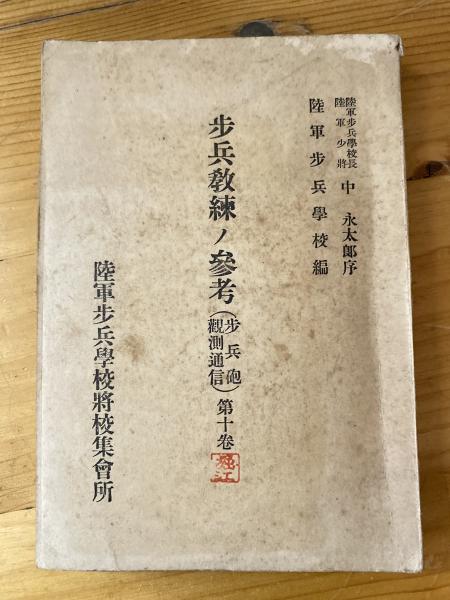 陸軍步兵學校長
陸軍少將
中永太郎序
陸軍步兵學校編
步兵敎練ノ參考(步兵砲觀測通信)第十卷
堀江
陸軍步兵學校將校集會所